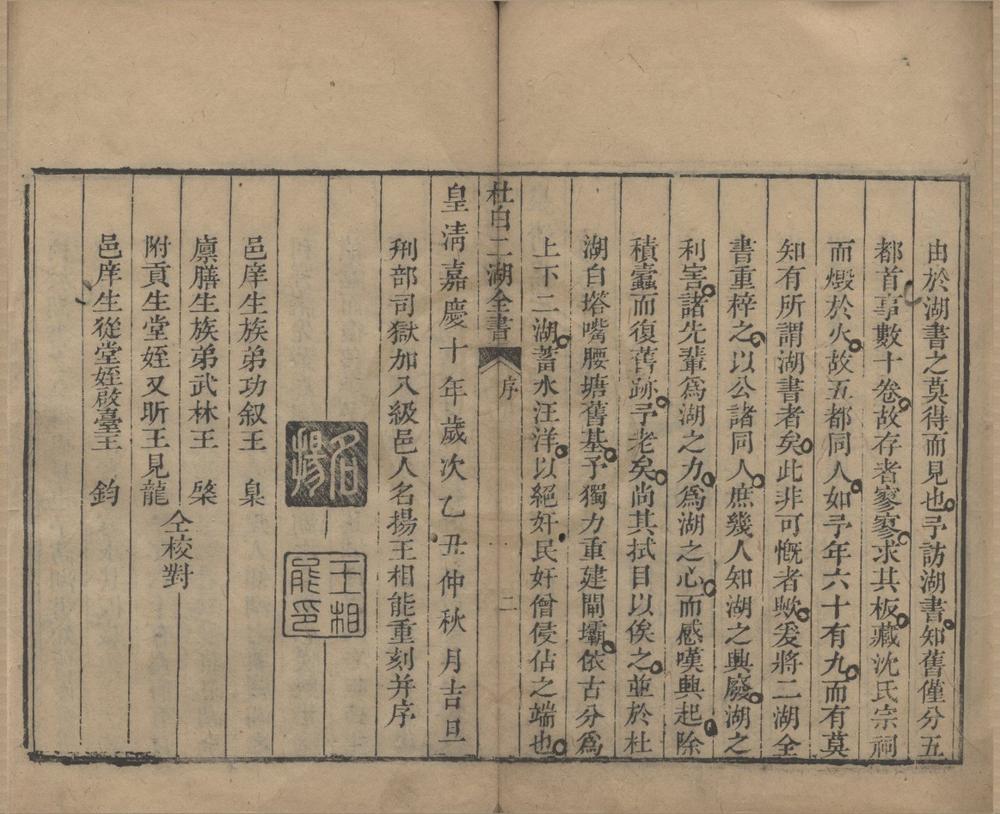 由於湖書之莫得而見也予訪湖書知舊僅分五
都首事數十卷故存者寥寥求其板藏沈氏宗祠
而燬於火故五都同人如予年六十有九而有莫
知有所謂湖書者矣此非可慨者歟爰將二湖全
書重梓之以公諸同人庶幾人知湖之興廢湖之
利害諸先輩爲湖之力爲湖之心而感嘆興起除
積蠹而復舊跡予老矣尚其拭目以俟之並於杜
湖白塔嘴腰塘舊基予獨力重建閘壩依古分爲
上下二湖蓄水汪洋以絕奸民奸僧侵佔之端也
杜白二湖全書 序 二
皇清嘉慶十年歲次乙丑仲秋月吉旦
刑部司獄加八級邑人名揚王相能重刻并序
名揚
王相能印
邑庠生族弟功叙王 臬
廪膳生族弟武林王 棨
附貢生堂姪又昕王見龍
邑庠生從堂姪啟臺王 鈞
仝校對